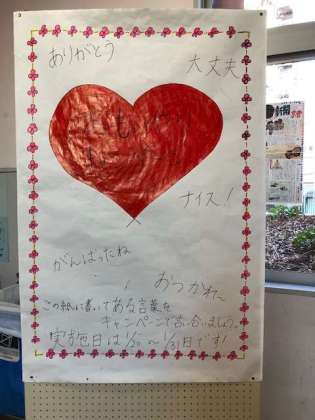 ありがとう
大丈夫
ナイス!
がんばったね
おつかれ〜
この紙に書いてある言葉を
キャンペーンで言い合いましょう。
実施日は1/20〜1/31日です!